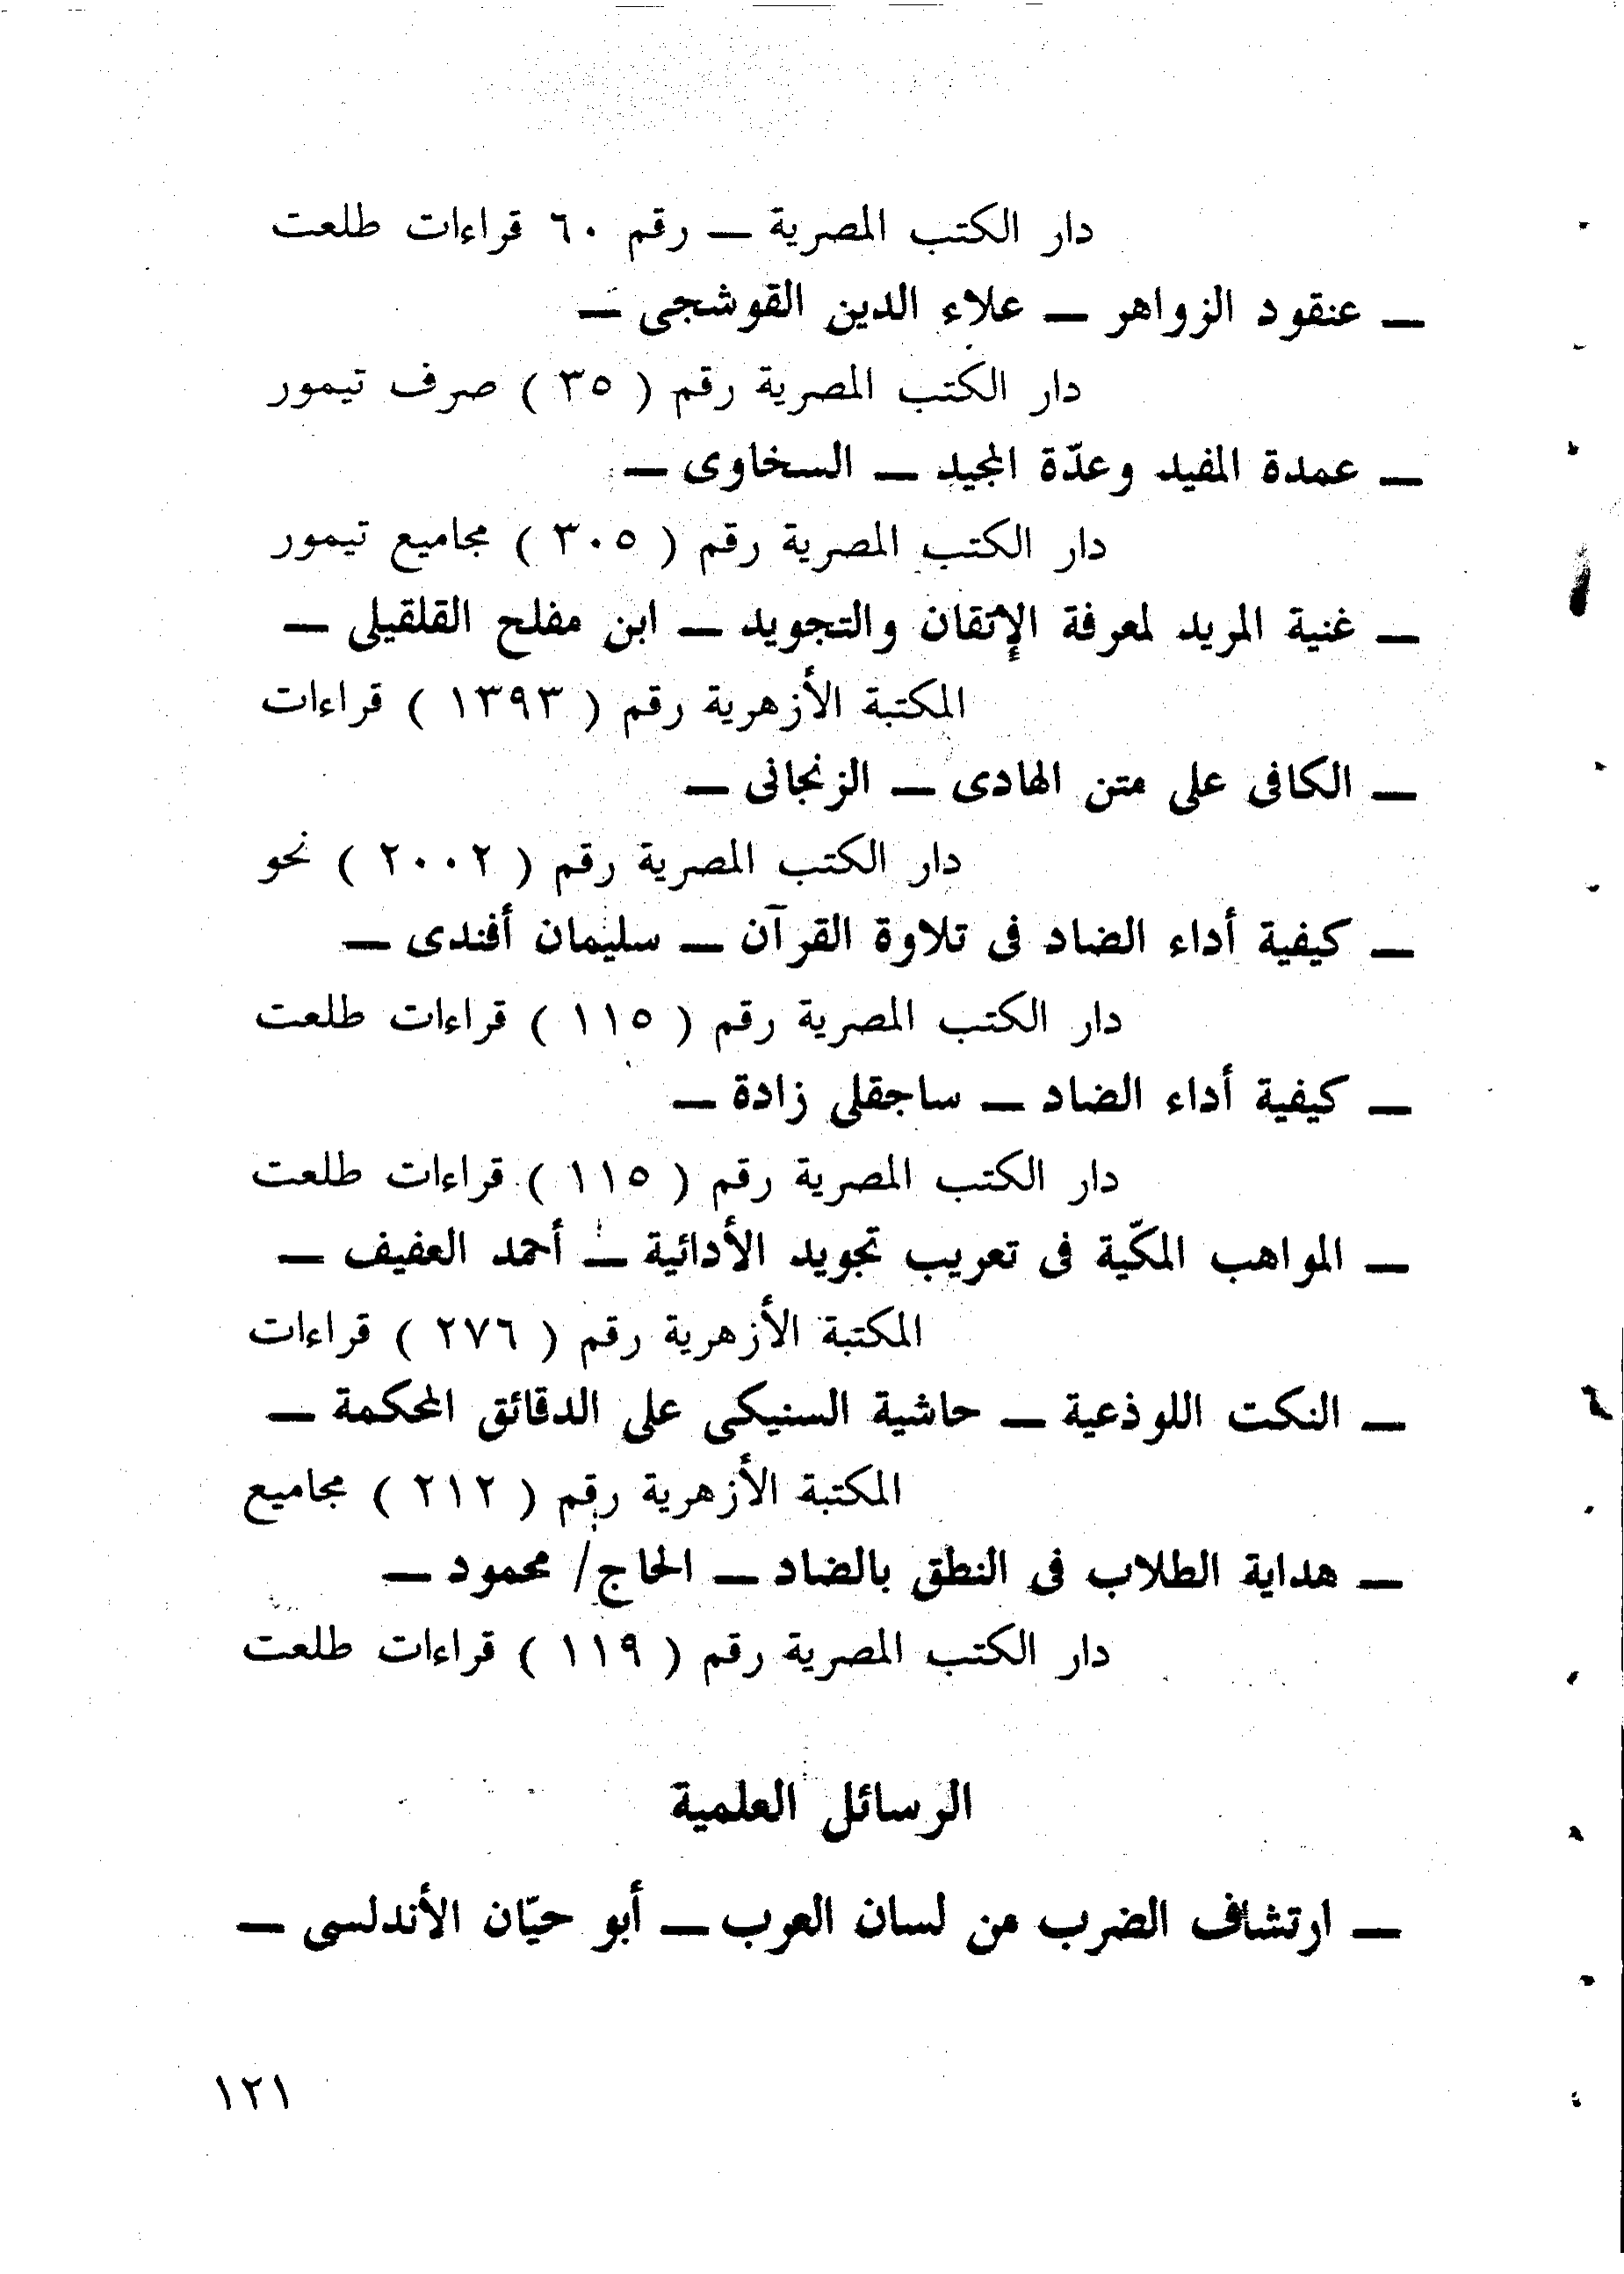 دار الكتب المصرية — رقم ٦٠ قراءات طلعت
— عنقود الزواهر — علاء الدين القوشجى —
دار الكتب المصرية رقم ( ٣٥ ) صرف تيمور
— عمدة المفيد وعدّة المجيد — السخاوى —
دار الكتب المصرية رقم ( ٣٠٥ ) مجاميع تيمور
— غنية المريد لمعرفة الإتقان والتجويد — ابن مفلح القلقيلى —
المكتبة الأزهرية رقم ( ١٣٩٣ ) قراءات
— الكافى على متن الهادى — الزنجانى —
دار الكتب المصرية رقم ( ٢٠٠٢ ) نحو
— كيفية أداء الضاد فى تلاوة القرآن — سليمان أفندى —
دار الكتب المصرية رقم ( ١١٥ ) قراءات طلعت
— كيفية أداء الضاد — ساجقلى زادة —
دار الكتب المصرية رقم ( ١١٥ ) قراءات طلعت
— المواهب المكّية فى تعريب تجويد الأدائية — أحمد العفيف —
المكتبة الأزهرية رقم ( ٢٧٦ ) قراءات
— النكت اللوذعية — حاشية السنيكى على الدقائق المحكمة —
المكتبة الأزهرية رقم ( ٢١٢ ) مجاميع
— هداية الطلاب فى النطق بالضاد — الحاج/ محمود —
دار الكتب المصرية رقم ( ١١٩ ) قراءات طلعت
الرسائل العلمية
— ارتشاف الضرب من لسان العرب — أبو حيّان الأندلسى —
١٢١